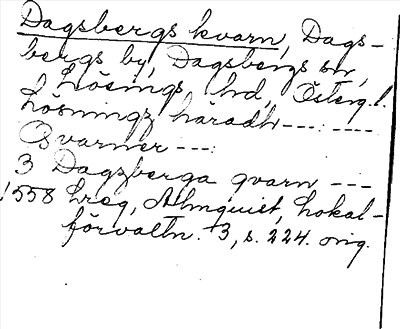 Dagsbergs kvarn, Dags-
bergs by, Dagsbergs sn,
Lösings hd, Österg.l.
Lösningz häradh---: ----
Qvarner ---:
3 Dagzberga qvarn ---
1558 Lreg, Almquist, Lokal-
förvaltn. 3, s. 224. orig.